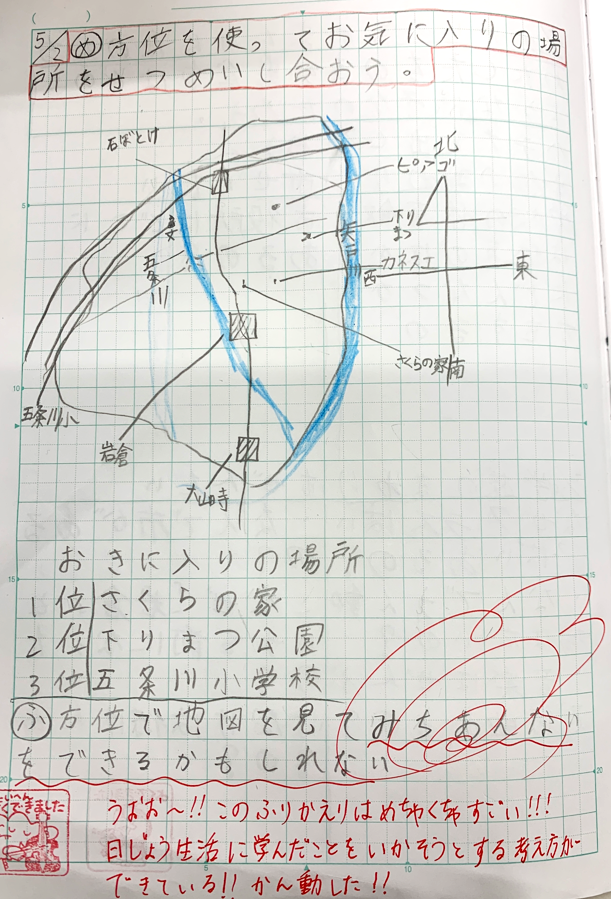 5/2 め 方位を使ってお気に入りの場
所をせつめいし合おう。
石ぼとけ
北
ピアゴ
下り
まつ
矢戸川
五条川
カネスエ
西
東
さくらの家
南
五条川小
岩倉
大山寺
おきに入りの場所
1位 さくらの家
2位 下りまつ公園
3位 五条川小学校
ふ 方位で地図を見てみちあんない
をできるかもしれない
できました
うおお〜!!このふりかえりはめちゃくちゃすごい!!!
日じょう生活に学んだことをいかそうとする考え方が
できている!!かん動した!!